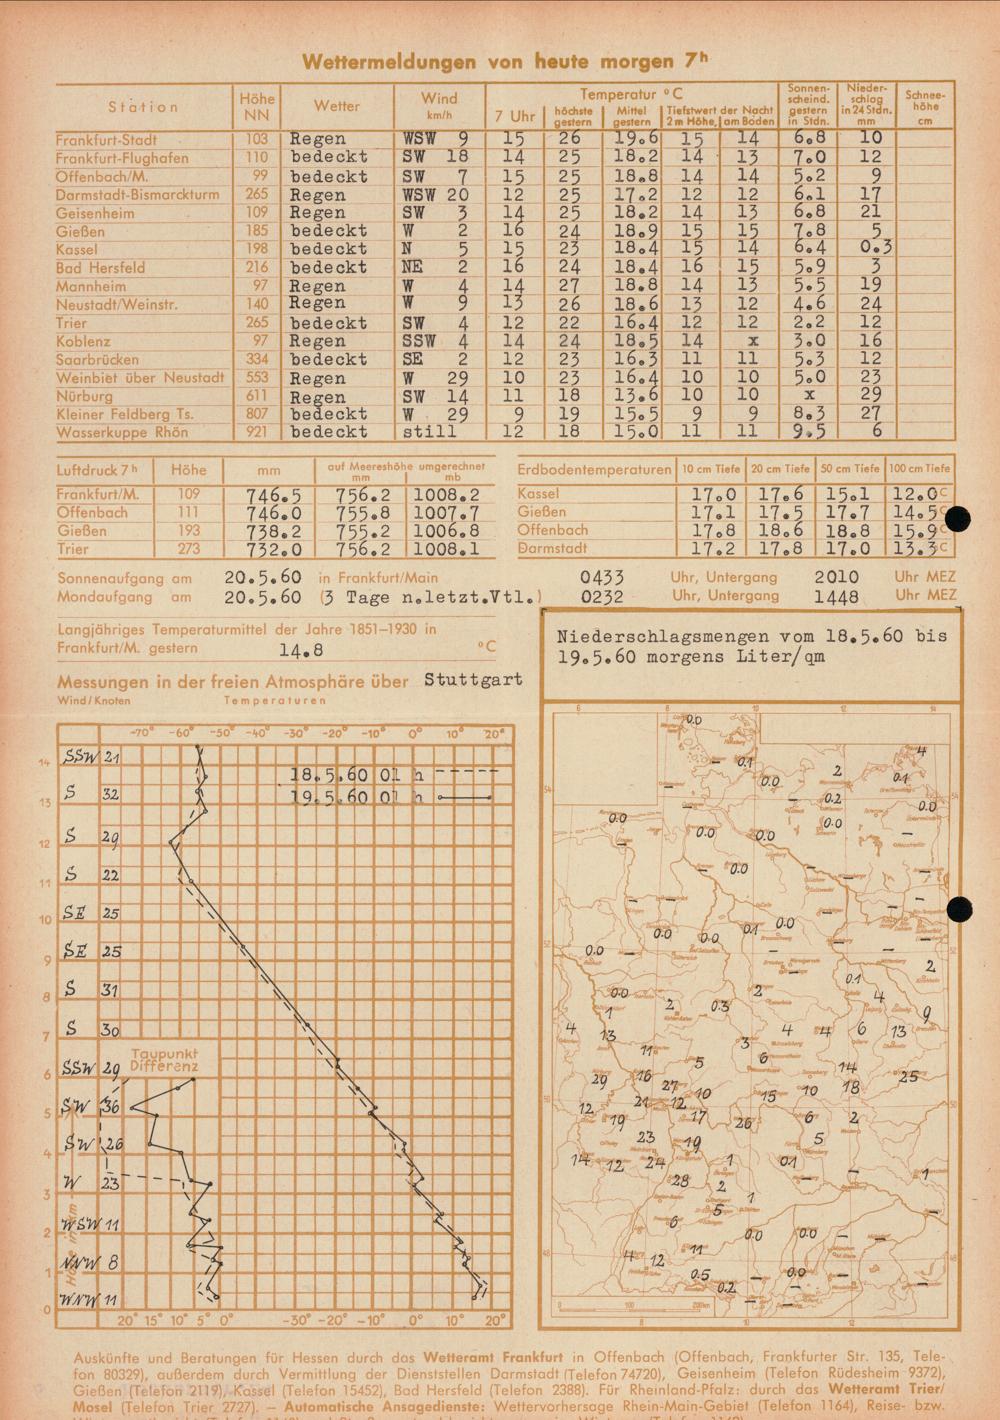 Wettermeldungen von heute morgen 7h
Station Höhe NN Wetter Wind km/h Temperatur °C 7 Uhr höchste gestern Mittel gestern Tiefstwert der Nacht 2 m Höhe, am Boden Sonnenscheind. gestern in Stdn. Niederschlag in 24 Stdn. mm Schneehöhe cm
Frankfurt-Stadt 103 Regen WSW 9 15 26 19.6 15 14 6.8 10
Frankfurt-Flughafen 110 bedeckt SW 18 14 25 18.2 14 13 7.0 12
Offenbach/M. 99 bedeckt SW 7 15 25 18.8 14 14 5.2 9
Darmstadt-Bismarckturm 265 Regen WSW 20 12 25 17.2 12 12 6.1 17
Geisenheim 109 Regen SW 3 14 25 18.2 14 13 6.8 21
Gießen 185 bedeckt W 2 16 24 18.9 15 15 7.8 5
Kassel 198 bedeckt N 5 15 23 18.4 15 14 6.4 0.3
Bad Hersfeld 216 bedeckt NE 2 16 24 18.4 16 15 5.9 3
Mannheim 97 Regen W 4 14 27 18.8 14 13 5.5 19
Neustadt/Weinstr. 140 Regen W 9 13 26 18.6 13 12 4.6 24
Trier 265 bedeckt SW 4 12 22 16.4 12 12 2.2 12
Koblenz 97 Regen SSW 4 14 24 18.5 14 x 3.0 16
Saarbrücken 334 bedeckt SE 2 12 23 16.3 11 11 5.3 12
Weinbiet über Neustadt 553 Regen W 29 10 23 16.4 10 10 5.0 23
Nürburg 611 Regen SW 14 11 18 13.6 10 10 x 29
Kleiner Feldberg Ts. 807 bedeckt W 29 9 19 15.5 9 9 8.3 27
Wasserkuppe Rhön 921 bedeckt still 12 18 15.0 11 11 9.5 6
Luftdruck 7h Höhe mm auf Meereshöhe umgerechnet mm mb
Frankfurt/M. 109 746.5 756.2 1008.2
Offenbach 111 746.0 755.8 1007.7
Gießen 193 738.2 755.2 1006.8
Trier 273 732.0 756.2 1008.1
Erdbodentemperaturen 10 cm Tiefe 20 cm Tiefe 50 cm Tiefe 100 cm Tiefe
Kassel 17.0 17.6 15.1 12.0°C
Gießen 17.1 17.5 17.7 14.5°C
Offenbach 17.8 18.6 18.8 15.9°C
Darmstadt 17.2 17.8 17.0 13.3°C
Sonnenaufgang am 20.5.60 in Frankfurt/Main 0433 Uhr, Untergang 2010 Uhr MEZ
Mondaufgang am 20.5.60 (3 Tage n.letzt.Vtl.) 0232 Uhr, Untergang 1448 Uhr MEZ
Langjähriges Temperaturmittel der Jahre 1851–1930 in
Frankfurt/M. gestern 14.8 °C
Messungen in der freien Atmosphäre über Stuttgart
Wind/Knoten Temperaturen
-70° -60° -50° -40° -30° -20° -10° 0° 10° 20°
14 SSW 21
18.5.60 01 h
19.5.60 01 h
13 S 32
12 S 29
11 S 22
10 SE 25
9 SE 25
8 S 31
7 S 30
6 SSW 29
Taupunkt
Differenz
5 SW 36
4 SW 26
3 W 23
2 WSW 11
1 NNW 8
0 WNW 11
Höhe in km
20° 15° 10° 5° 0° -30° -20° -10° 0° 10° 20°
Niederschlagsmengen vom 18.5.60 bis
19.5.60 morgens Liter/qm
6 8 10 12 14
0.0
4
0.1 2
0.0 0.1
0.2 0.0
0.0 0.0
0.0 0.0
0.0
0.0
0.0 0.0 0.1
0.0
2
0.1
0.0 2 4
1 2 0.3 9
4 13 4 4 6 13
3
11 5 6
14
29 16 27 10 15 10 18 25
12 21 12
19 17 26 6 2
23 19 5
14 12 24 1 0.1
28 1
2 1
5
6
0.0 0.0
4 12 11
0.5 0.0
0.2
0 100 200km
Auskünfte und Beratungen für Hessen durch das Wetteramt Frankfurt in Offenbach (Offenbach, Frankfurter Str. 135, Tele-
fon 80329), außerdem durch Vermittlung der Dienststellen Darmstadt (Telefon 74720), Geisenheim (Telefon Rüdesheim 9372),
Gießen (Telefon 2119), Kassel (Telefon 15452), Bad Hersfeld (Telefon 2388). Für Rheinland-Pfalz: durch das Wetteramt Trier/
Mosel (Telefon Trier 2727). — Automatische Ansagedienste: Wettervorhersage Rhein-Main-Gebiet (Telefon 1164), Reise- bzw.